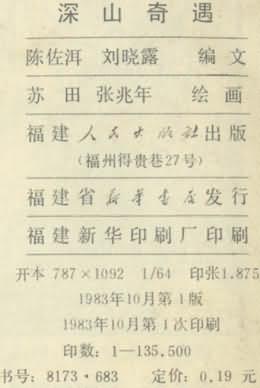 深山奇遇
陈佐洱 刘晓露 编文
苏田 张兆年 绘画
福建人民出版社出版
(福州得贵巷27号)
福建省新华书店发行
福建新华印刷厂印刷
开本 787×1092 1/64 印张1.875
1983年10月第1版
1983年10月第1次印刷
印数:1—135,500
书号:8173·683 定价:0.19 元